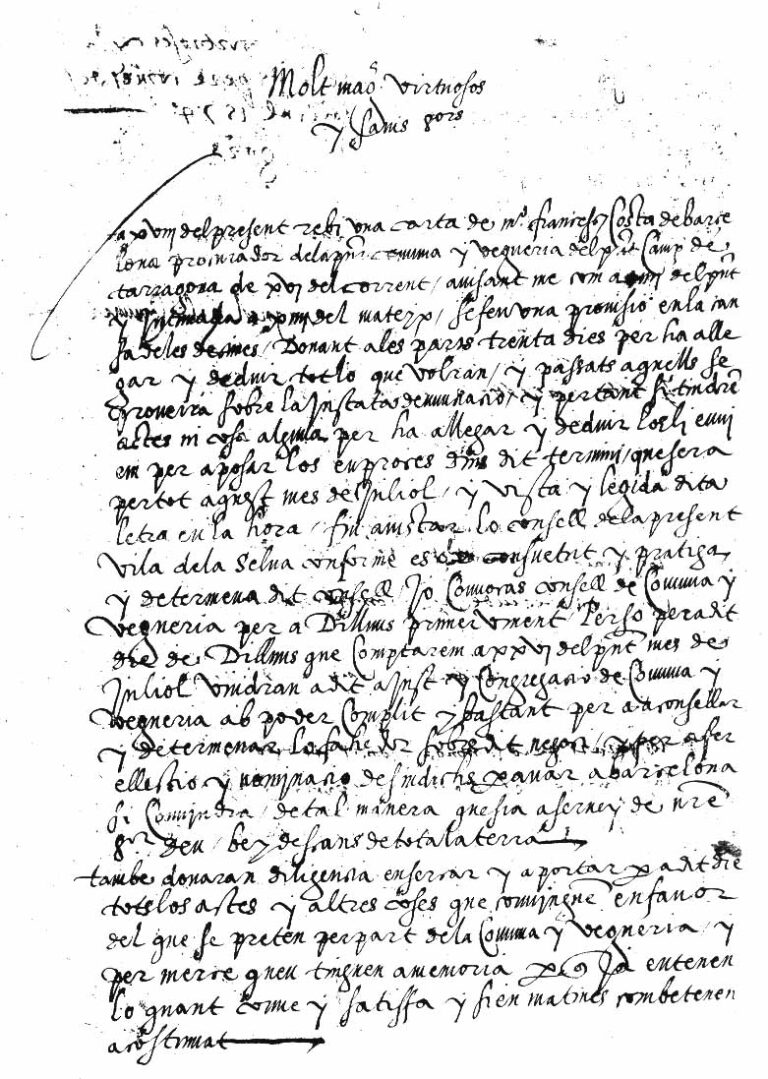 Molt mag.s virtuosos
y savis s.ors
a xviij del present rebi una carta de m.o francesch Costa de barce
lona procurador de la p.nt comuna y vegueria del p.nt Camp de
tarragona de xvj del corrent / avisant me com a del p.nt
y intimada a xiiij del mateix / se feu una provisio en la cau
sa de les desmes / Donant a les parts trenta dies per ha alle
gar y deduir tot lo que volran / y passats aquells se
proveira sobre la instada denunciacio / y pertant si tindren
actes ni cosa alguna per ha allegar y deduir los hi envi
em per aposar los en proces dins dit termini / que sera
per tot aquest mes de Juliol / y vista y legida dita
letra en la hora / fiu aiustar lo consell de la present
vila de la Selva conforme es consuetut y pratiga
y determena dit consell / Jo Convocas consell de Comuna y
vegueria per a Dilluns primer vinent / Perso per a dit
die de Dilluns que Comptarem a xxvj del p.nt mes de
Juliol vindran a dit aiust y Congregacio de Comuna y
vegueria ab poder Complit y bastant per a aconsellar
y determenar lo fahedor sobredit negoci / y per a fer
ellectio y nominacio de sindichs p anar a barcelona
si Convindra / de tal manera que sia a servey de nre
s.or deu / be y descans de tota la terra
tambe donaran diligencia en sercar y aportar p a dit die
tots los actes y altres coses que convinguen en favor
del que se preten per part de la Comuna y vegueria / y
per merce que u tinguen a memoria p q Ja entenen
lo quant conve y satisfa y sien matines com be tenen
acostumat